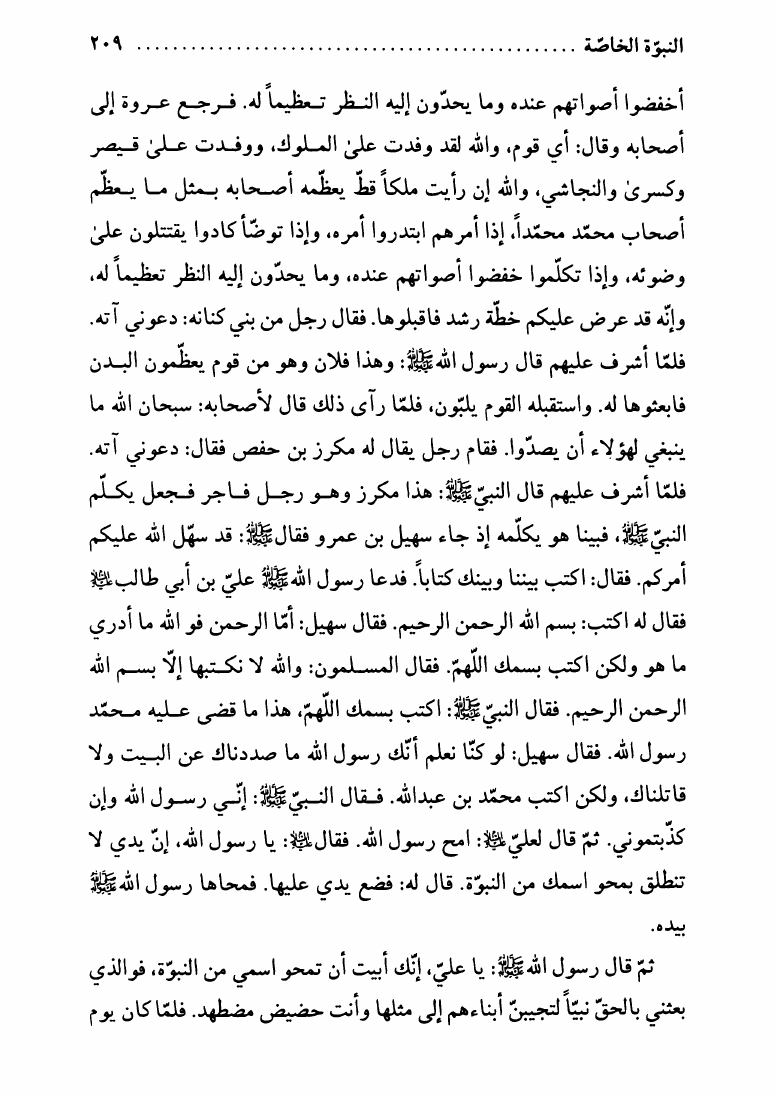 النبوّة الخاصّة ................................................ ٢٠٩
أخفضوا أصواتهم عنده وما يحدّون إليه النـظر تـعظيماً له. فـرجـع عـروة إلى
أصحابه وقال: أي قوم، والله لقد وفدت علىٰ المـلوك، ووفـدت عـلىٰ قـيصر
وكسرىٰ والنجاشي، والله إن رأيت ملكاً قطّ يعظّمه أصـحابه بـمثل مـا يـعظّم
أصحاب محمّد محمّداً، إذا أمرهم ابتدروا أمره، وإذا توضّأ كادوا يقتتلون علىٰ
وضوئه، وإذا تكلّموا خفضوا أصواتهم عنده، وما يحدّون إليه النظر تعظيماً له،
وإنّه قد عرض عليكم خطّة رشد فاقبلوها. فقال رجل من بني كنانه: دعوني آته.
فلمّا أشرف عليهم قال رسول الله ﷺ: وهذا فلان وهو من قوم يعظّمون البـدن
فابعثوها له. واستقبله القوم يلبّون، فلمّا رآى ذلك قال لأصحابه: سبحان الله ما
ينبغي لهؤلاء أن يصدّوا. فقام رجل يقال له مكرز بن حفص فقال: دعوني آته.
فلمّا أشرف عليهم قال النبيّ ﷺ: هذا مكرز وهـو رجـل فـاجر فـجعل يكـلّم
النبيّ ﷺ، فبينا هو يكلّمه إذ جاء سهيل بن عمرو فقال ﷺ: قد سهّل الله عليكم
أمركم. فقال: اكتب بيننا وبينك كتاباً. فدعا رسول الله ﷺ عليّ بن أبي طالب عليه السلام
فقال له اكتب: بسم الله الرحمن الرحيم. فقال سهيل: أمّا الرحمن فو الله ما أدري
ما هو ولكن اكتب بسمك اللّهمّ. فقال المسـلمون: والله لا نكـتبها إلّا بسـم الله
الرحمن الرحيم. فقال النبيّ ﷺ: اكتب بسمك اللّهمّ، هذا ما قضى عـليه مـحمّد
رسول الله. فقال سهيل: لو كنّا نعلم أنّك رسول الله ما صددناك عن البـيت ولا
قاتلناك، ولكن اكتب محمّد بن عبدالله. فـقال النـبيّ ﷺ: إنّـي رسـول الله وإن
كذّبتموني. ثمّ قال لعليّ عليه السلام: امح رسول الله. فقال عليه السلام: يا رسول الله، إنّ يدي لا
تنطلق بمحو اسمك من النبوّة. قال له: فضع يدي عليها. فمحاها رسول الله ﷺ
بيده.
ثمّ قال رسول الله ﷺ: يا عليّ، إنّك أبيت أن تمحو اسمي من النبوّة، فوالذي
بعثني بالحقّ نبيّاً لتجيبنّ أبناءهم إلى مثلها وأنت حضيض مضطهد. فلمّا كان يوم